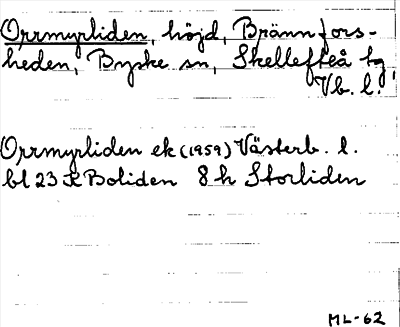 Orrmyrliden, höjd, Brännfors-
heden, Byske sn, Skellefteå tg,
Vb. l.
Orrmyrliden ek (1959) Västerb. l.
bl 23 K Boliden 8 h Storliden
ML-62